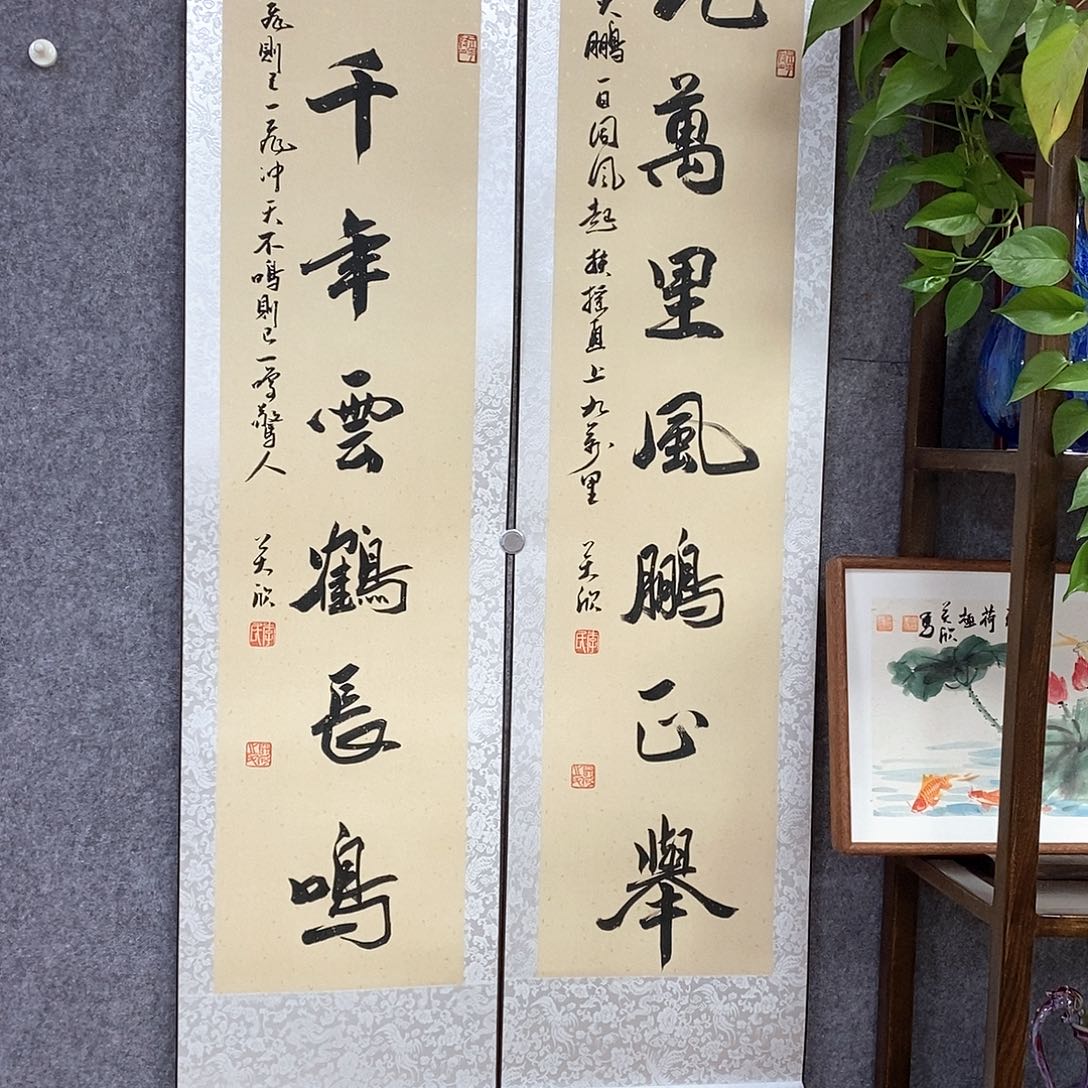 九萬里風鵬正舉
大鵬一日同風起扶搖直上九萬里
美欣
千年雲鶴長鳴
飛則已一飛冲天不鳴則已一鳴驚人
美欣
荷
美欣